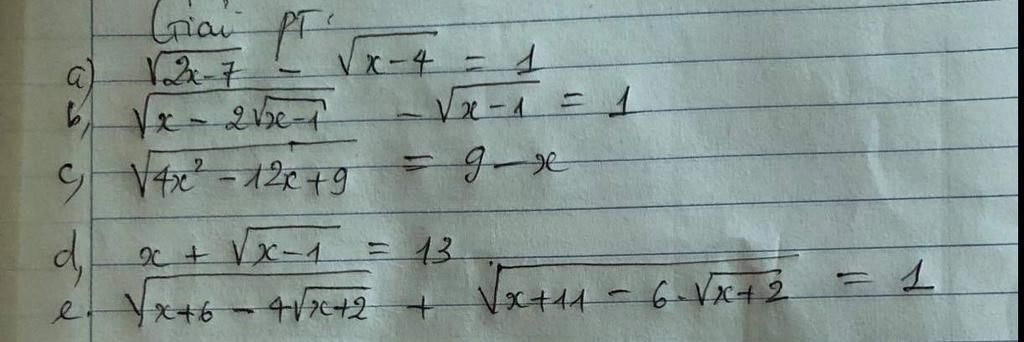 Giải PT:
a) √(2x-7) - √(x-4) = 1
b, √(x - 2√(x-1)) - √(x-1) = 1
c, √(4x² - 12x + 9) = 9 - x
d, x + √(x-1) = 13
e. √(x+6 - 4√(x+2)) + √(x+11 - 6.√(x+2)) = 1